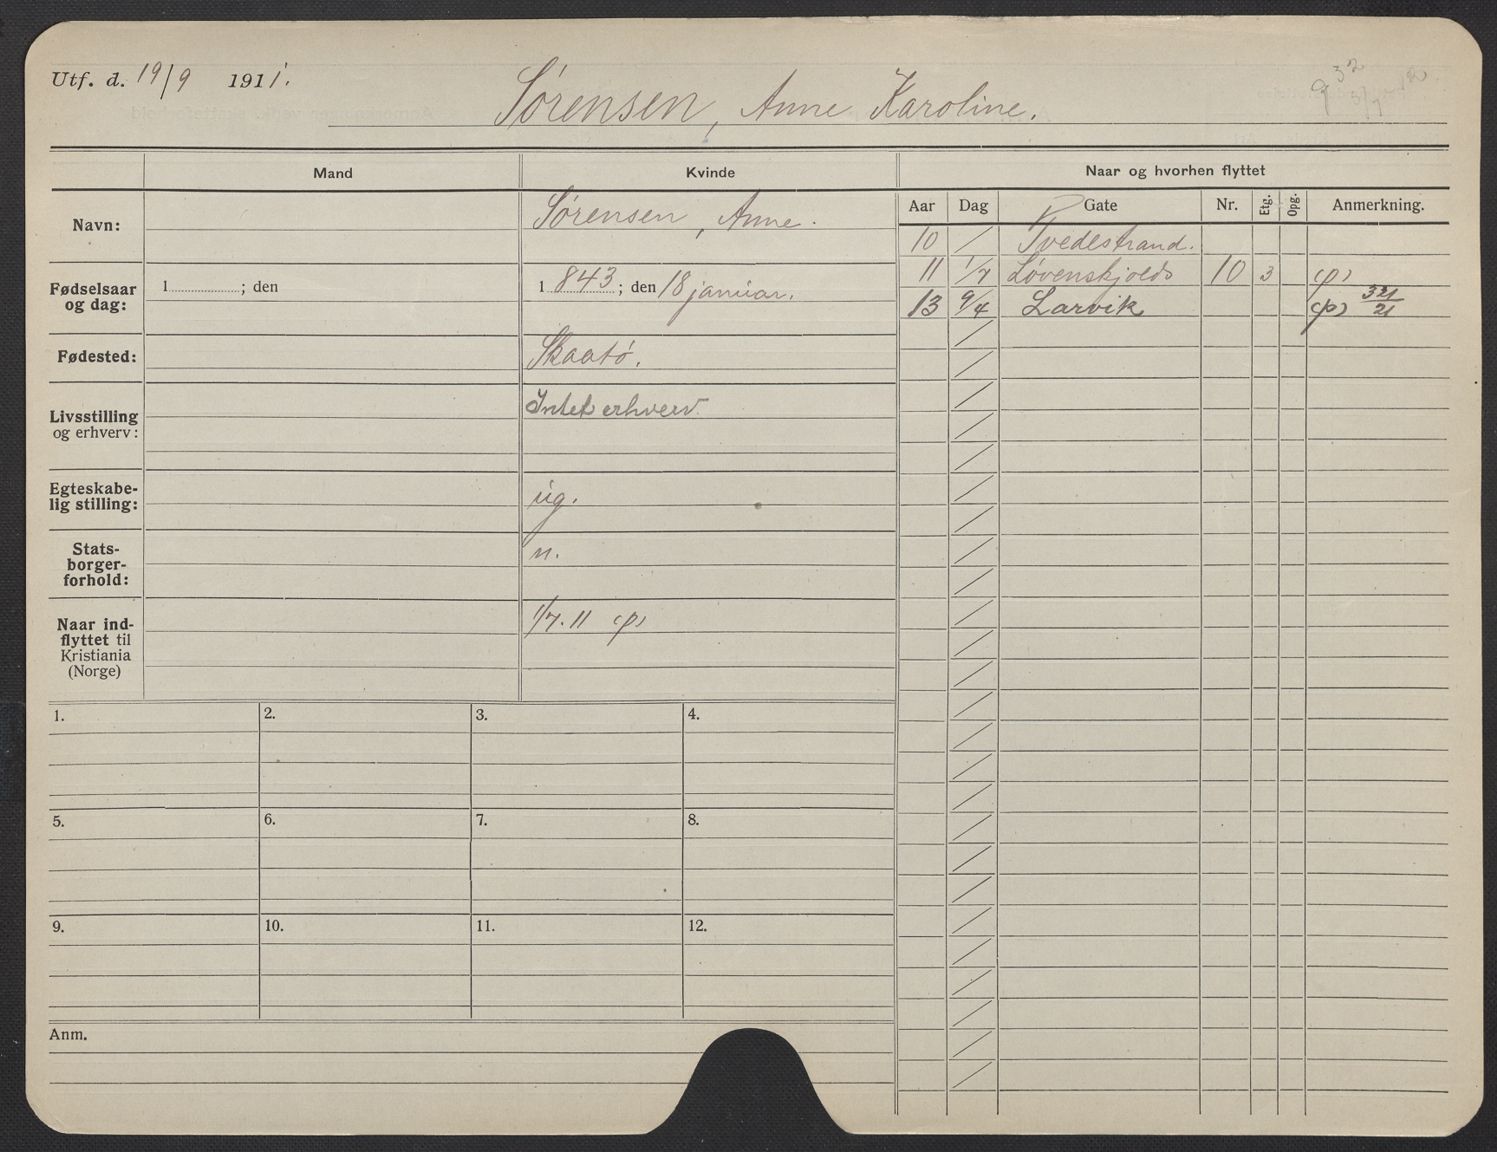 Utf. d. 19/9 1911.
Sørensen, Anne Karoline.
Mand
Kvinde
Naar og hvorhen flyttet
Navn:
Sørensen, Anne.
Aar Dag Gate Nr. Etg. Opg. Anmerkning.
10 / Tvedestrand.
11 1/7 Løvenskjolds 10 3 (p)
13 9/4 Larvik (p) 321/21
Fødselsaar
og dag:
1 ; den
1 843 ; den 18 januar.
Fødested:
Skaatö.
Livsstilling
og erhverv:
Intet erhverv
Egteskabe-
lig stilling:
ug.
Stats-
borger-
forhold:
n.
Naar ind-
flyttet til
Kristiania
(Norge)
1/7. 11 (p)
1. 2. 3. 4.
5. 6. 7. 8.
9. 10. 11. 12.
Anm.